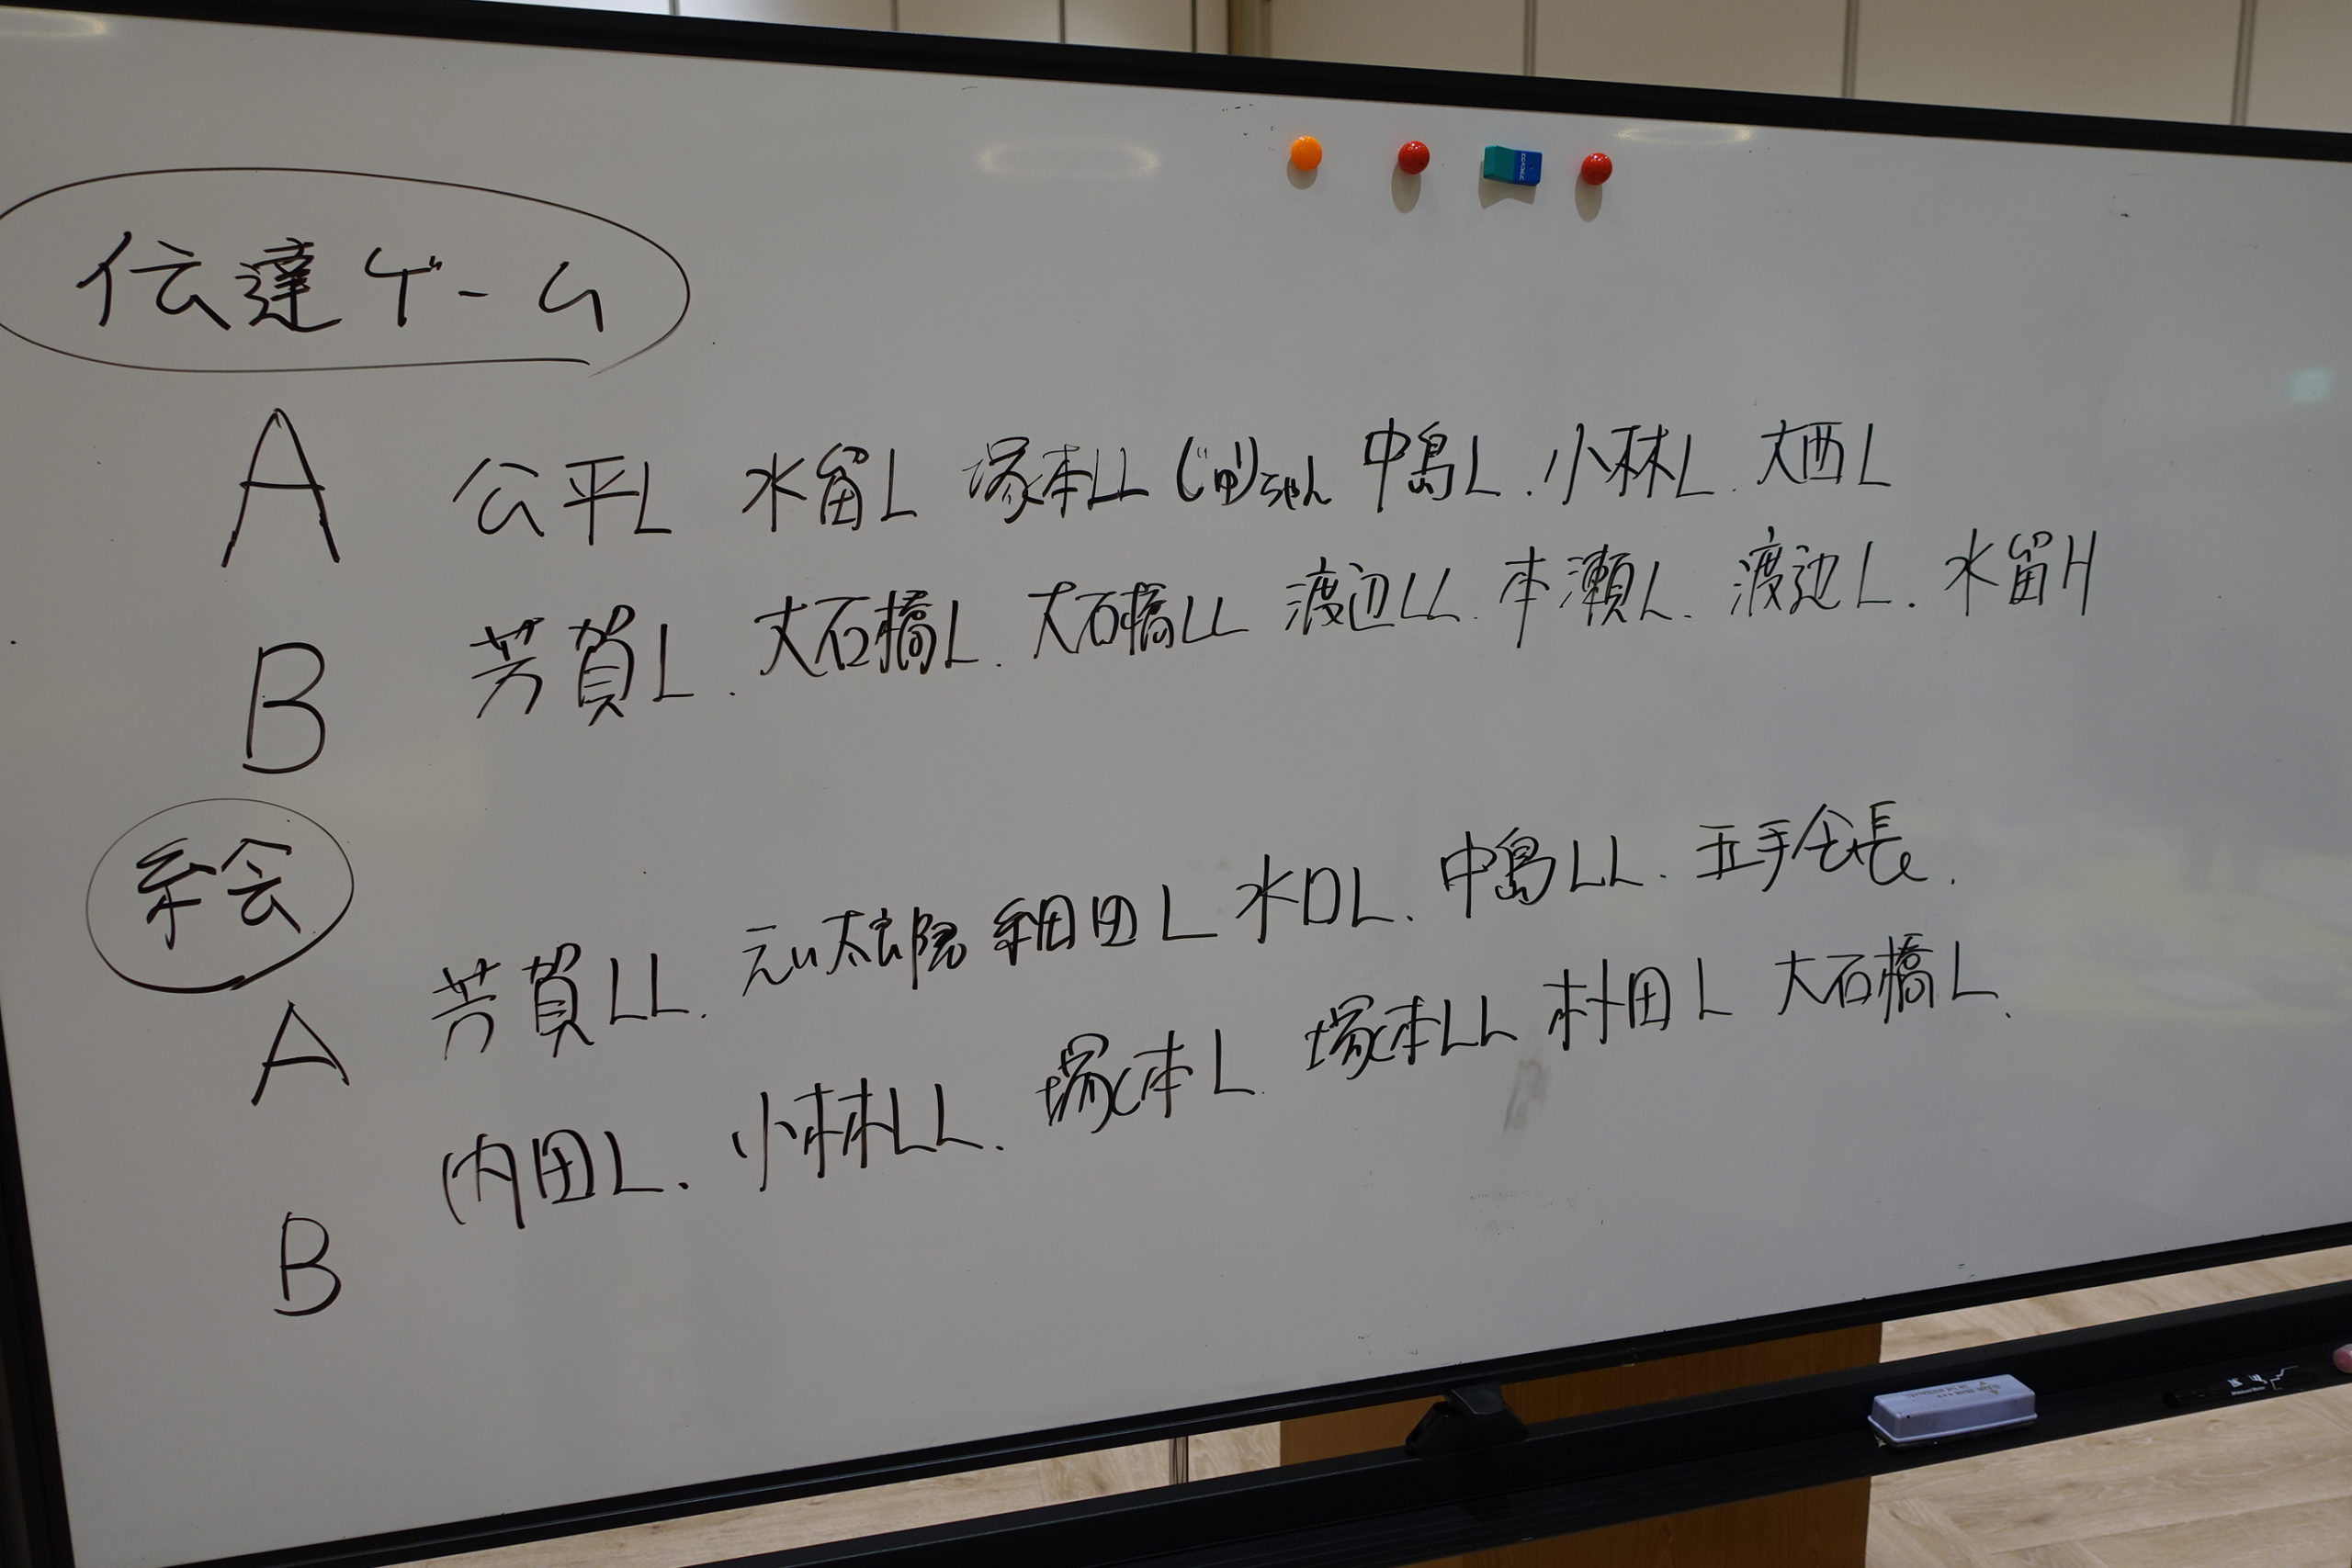 伝達ゲーム
A 公平L 水留L 塚本LL じゅりちゃん 中島L.小林L.大西L
B 芳賀L.大石橋L.大石橋LL 渡辺LL.本瀬L.渡辺L.水留H
絵
A 芳賀LL. 細田L 水口L.中島LL.五手会長.
B 内田L.小林LL.塚本L.塚本LL 村田L 大石橋L.